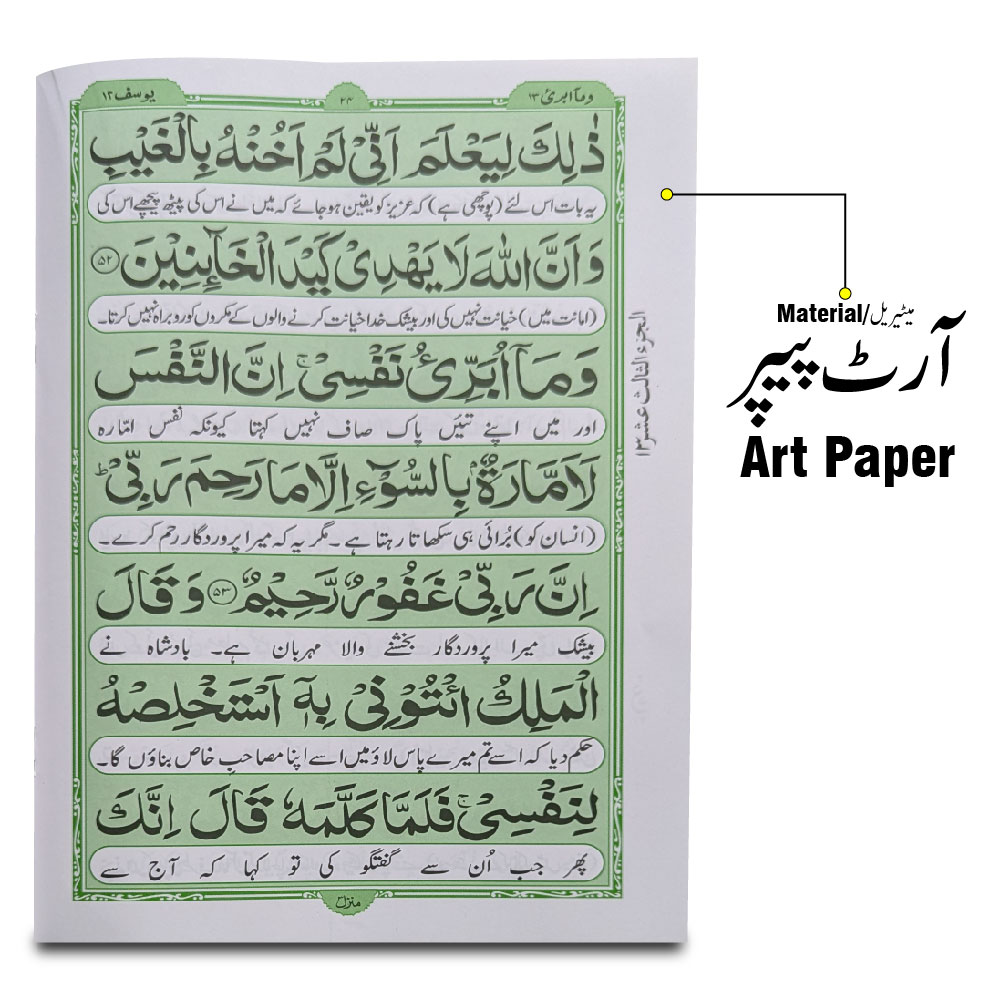 وما ابرئ ۱۳
۲۴
یوسف ۱۲
ذٰلِكَ لِیَعْلَمَ اَنِّیْ لَمْ اَخُنْهُ بِالْغَیْبِ
یہ بات اس لئے (پوچھی ہے) کہ عزیز کو یقین ہو جائے کہ میں نے اس کی پیٹھ پیچھے اس کی
وَاَنَّ اللّٰهَ لَا یَهْدِیْ كَیْدَ الْخَآىِٕنِیْنَ ۵۲
(امانت میں) خیانت نہیں کی اور بیشک خدا خیانت کرنے والوں کے مکروں کو روبراہ نہیں کرتا۔
وَمَاۤ اُبَرِّئُ نَفْسِیْۚ اِنَّ النَّفْسَ
اور میں اپنے تئیں پاک صاف نہیں کہتا کیونکہ نفس امّارہ
لَاَمَّارَةٌۢ بِالسُّوْٓءِ اِلَّا مَا رَحِمَ رَبِّیْؕ
(انسان کو) بُرائی ہی سکھاتا رہتا ہے۔ مگر یہ کہ میرا پروردگار رحم کرے۔
اِنَّ رَبِّیْ غَفُوْرٌ رَّحِیْمٌ ۵۳ وَقَالَ
بیشک میرا پروردگار بخشنے والا مہربان ہے۔ بادشاہ نے
الْمَلِكُ ائْتُوْنِیْ بِهٖۤ اَسْتَخْلِصْهُ
حکم دیا کہ اسے تم میرے پاس لاؤ میں اسے اپنا مصاحبِ خاص بناؤں گا۔
لِنَفْسِیْۚ فَلَمَّا كَلَّمَهٗ قَالَ اِنَّكَ
پھر جب اُن سے گفتگو کی تو کہا کہ آج سے
منزل ۳
الجزء الثالث عشر ۱۳
Material/میٹیریل
آرٹ پیپر
Art Paper